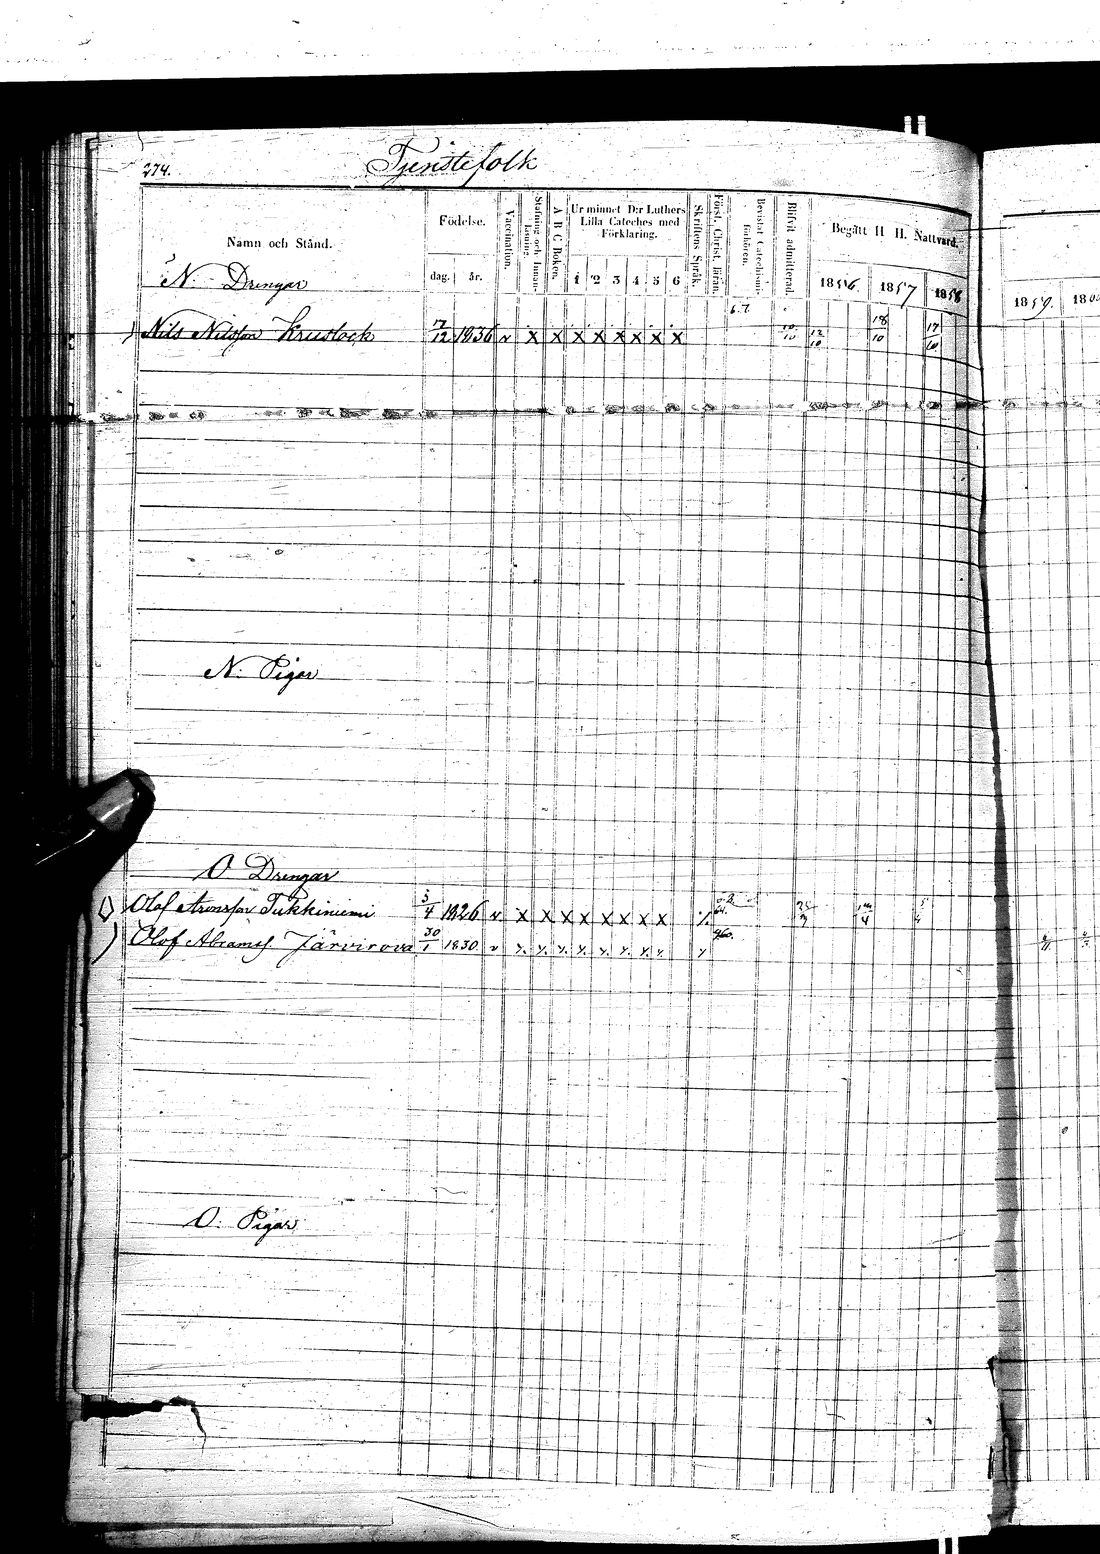 274.
Tjenstefolk
Namn och Stånd.
Födelse.
dag. år.
Vaccination.
Stafning och Innan-läsning.
A B C Boken.
Ur minnet D:r Luthers
Lilla Cateches med
Förklaring.
1 2 3 4 5 6
Skriftens Språk.
Först. Christ. läran.
Bevistat Catechismi-förhören.
Blifvit admitterad.
Begått H. H. Nattvard.
1856. 1857 1858
1859.
N. Drengar
Nils Nilsson Krustock 17/12 1836 v X X X X X X X X 12/10 18/10 17/10
N. Pigor
O Drengar
Olof Aronsson Tukkiniemi 3/4 1826 v X X X X X X X X
Olof Abramss. Järvirova 30/1 1830. v
O. Pigor